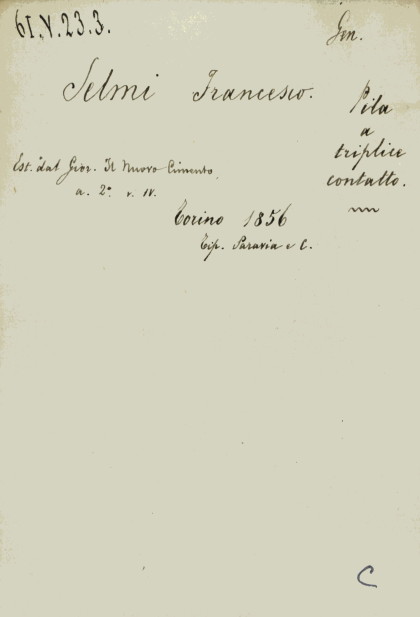 61.V.23.3.
Gen.
Selmi Francesco.
Pila
a
triplice
contatto.
Est. dal Gior. Il Nuovo Cimento.
a. 2º v. IV.
Torino 1856
Tip. Paravia e C.
C